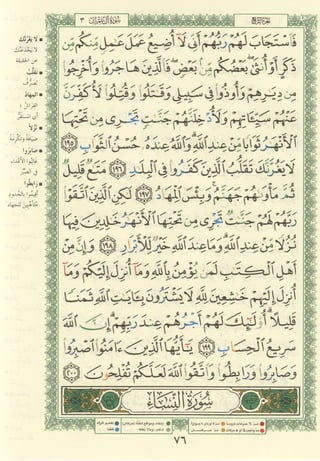 ٣ سُورَةُ آلِ عِمْرَانَ الجزء الرابع
فَاسْتَجَابَ لَهُمْ رَبُّهُمْ أَنِّى لَآ أُضِيعُ عَمَلَ عَٰمِلٍ مِّنكُم مِّن
ذَكَرٍ أَوْ أُنثَىٰ بَعْضُكُم مِّنۢ بَعْضٍ فَالَّذِينَ هَاجَرُوا۟ وَأُخْرِجُوا۟
مِن دِيَٰرِهِمْ وَأُوذُوا۟ فِى سَبِيلِى وَقَٰتَلُوا۟ وَقُتِلُوا۟ لَأُكَفِّرَنَّ
عَنْهُمْ سَيِّـَٔاتِهِمْ وَلَأُدْخِلَنَّهُمْ جَنَّٰتٍ تَجْرِى مِن تَحْتِهَا
الْأَنْهَٰرُ ثَوَابًا مِّنْ عِندِ اللَّهِ وَاللَّهُ عِندَهُۥ حُسْنُ الثَّوَابِ ١٩٥
لَا يَغُرَّنَّكَ تَقَلُّبُ الَّذِينَ كَفَرُوا۟ فِى الْبِلَٰدِ ١٩٦ مَتَٰعٌ قَلِيلٌ
ثُمَّ مَأْوَىٰهُمْ جَهَنَّمُ وَبِئْسَ الْمِهَادُ ١٩٧ لَٰكِنِ الَّذِينَ اتَّقَوْا۟
رَبَّهُمْ لَهُمْ جَنَّٰتٌ تَجْرِى مِن تَحْتِهَا الْأَنْهَٰرُ خَٰلِدِينَ فِيهَا
نُزُلًا مِّنْ عِندِ اللَّهِ وَمَا عِندَ اللَّهِ خَيْرٌ لِّلْأَبْرَارِ ١٩٨ وَإِنَّ مِنْ
أَهْلِ الْكِتَٰبِ لَمَن يُؤْمِنُ بِاللَّهِ وَمَآ أُنزِلَ إِلَيْكُمْ وَمَآ
أُنزِلَ إِلَيْهِمْ خَٰشِعِينَ لِلَّهِ لَا يَشْتَرُونَ بِـَٔايَٰتِ اللَّهِ ثَمَنًا
قَلِيلًا أُو۟لَٰٓئِكَ لَهُمْ أَجْرُهُمْ عِندَ رَبِّهِمْ إِنَّ اللَّهَ
سَرِيعُ الْحِسَابِ ١٩٩ يَٰٓأَيُّهَا الَّذِينَ ءَامَنُوا۟ اصْبِرُوا۟
وَصَابِرُوا۟ وَرَابِطُوا۟ وَاتَّقُوا۟ اللَّهَ لَعَلَّكُمْ تُفْلِحُونَ ٢٠٠
سُورَةُ النِّسَاءِ
٧٦
لا يغرّنّك
لا يخدعنّك
عن الحقيقة
تقلّب
تصرّف
المهاد
الفراش
نُزُلاً
صابروا
رابطوا